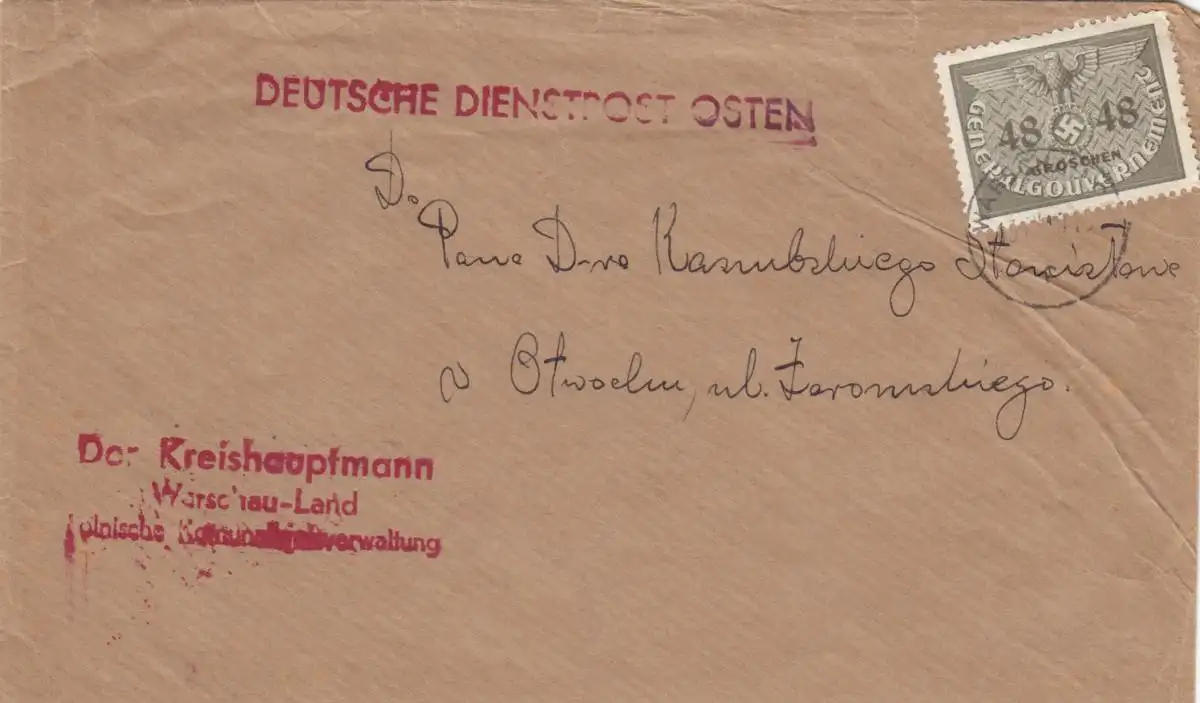 DEUTSCHE DIENSTPOST OSTEN
48 48
GROSCHEN
GENERALGOUVERNEMENT
WA
Do
Pana D-ra Kaszubskiego Stanisława
w Otwocku, ul. Żeromskiego.
Der Kreishauptmann
Warschau-Land
Polnische Kommunalverwaltung